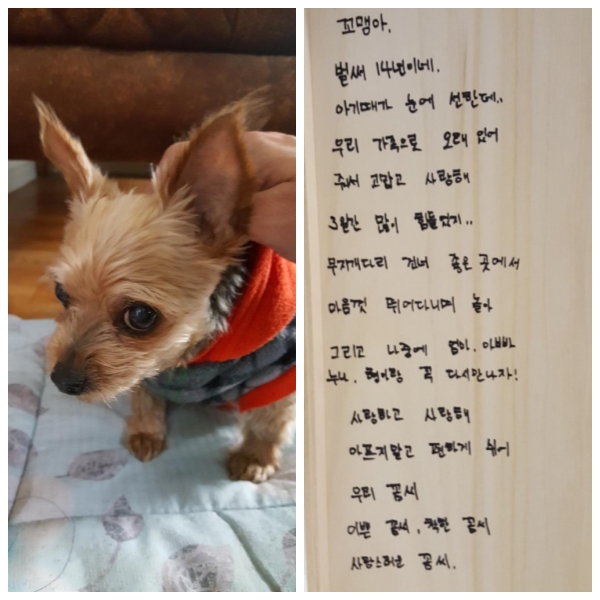 꼬맹아.
벌써 14년이네.
아기때가 눈에 선한데..
우리 가족으로 오래 있어
줘서 고맙고 사랑해
3일간 많이 힘들었지..
무지개다리 건너 좋은 곳에서
마음껏 뛰어다니며 놀아
그리고 나중에 엄마. 아빠
누나. 형아랑 꼭 다시만나자!
사랑하고 사랑해
아프지말고 편하게 쉬어
우리 꼼쎄
이쁜 꼼쎄. 착한 꼼쎄
사랑스러운 꼼쎄.